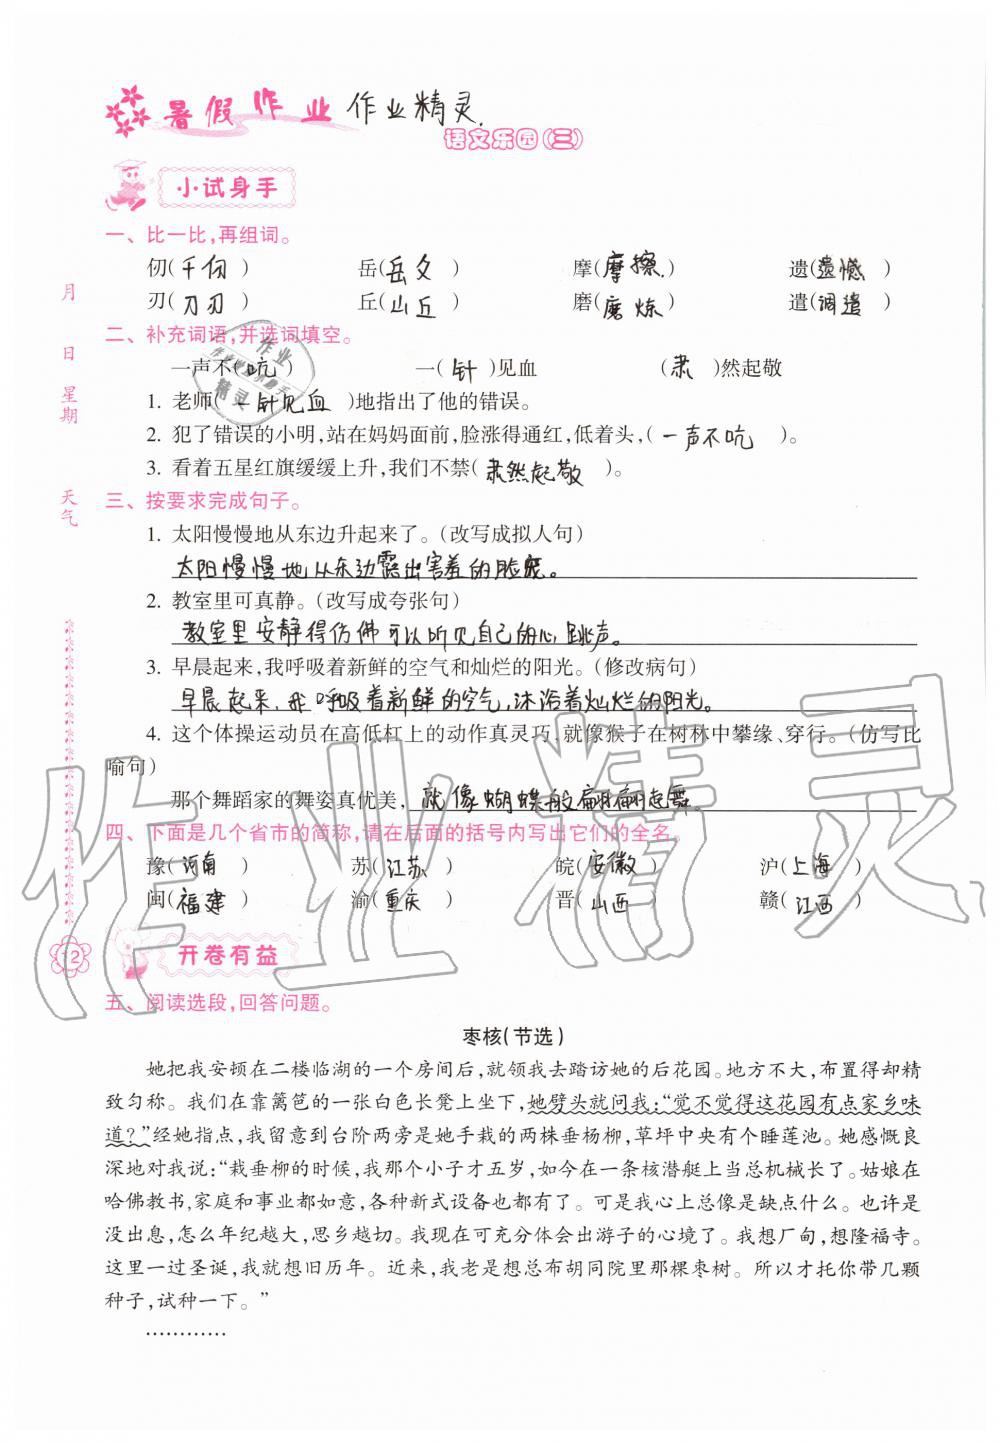 暑假作业 作业精灵.
语文乐园(三)
小试身手
一、比一比,再组词。
仞(千仞) 岳(岳父) 摩(摩擦) 遗(遗憾)
刃(刀刃) 丘(山丘) 磨(磨炼) 遣(调遣)
月
日
星期
天气
二、补充词语,并选词填空。
一声不(吭) 一(针)见血 (肃)然起敬
1. 老师(一针见血)地指出了他的错误。
2. 犯了错误的小明,站在妈妈面前,脸涨得通红,低着头,(一声不吭)。
3. 看着五星红旗缓缓上升,我们不禁(肃然起敬)。
三、按要求完成句子。
1. 太阳慢慢地从东边升起来了。(改写成拟人句)
太阳慢慢地从东边露出害羞的脸庞。
2. 教室里可真静。(改写成夸张句)
教室里安静得仿佛可以听见自己的心跳声。
3. 早晨起来,我呼吸着新鲜的空气和灿烂的阳光。(修改病句)
早晨起来,我呼吸着新鲜的空气,沐浴着灿烂的阳光。
4. 这个体操运动员在高低杠上的动作真灵巧,就像猴子在树林中攀缘、穿行。(仿写比
喻句)
那个舞蹈家的舞姿真优美,就像蝴蝶般翩翩起舞。
四、下面是几个省市的简称,请在后面的括号内写出它们的全名。
豫(河南) 苏(江苏) 皖(安徽) 沪(上海)
闽(福建) 渝(重庆) 晋(山西) 赣(江西)
12
开卷有益
五、阅读选段,回答问题。
枣核(节选)
她把我安顿在二楼临湖的一个房间后,就领我去踏访她的后花园。地方不大,布置得却精
致匀称。我们在靠篱笆的一张白色长凳上坐下,她劈头就问我:“觉不觉得这花园有点家乡味
道?”经她指点,我留意到台阶两旁是她手栽的两株垂杨柳,草坪中央有个睡莲池。她感慨良
深地对我说:“栽垂柳的时候,我那个小子才五岁,如今在一条核潜艇上当总机械长了。姑娘在
哈佛教书,家庭和事业都如意,各种新式设备也都有了。可是我心上总像是缺点什么。也许是
没出息,怎么年纪越大,思乡越切。我现在可充分体会出游子的心境了。我想厂甸,想隆福寺。
这里一过圣诞,我就想旧历年。近来,我老是想总布胡同院里那棵枣树。所以才托你带几颗
种子,试种一下。”
…………
作业精灵
作业
精灵